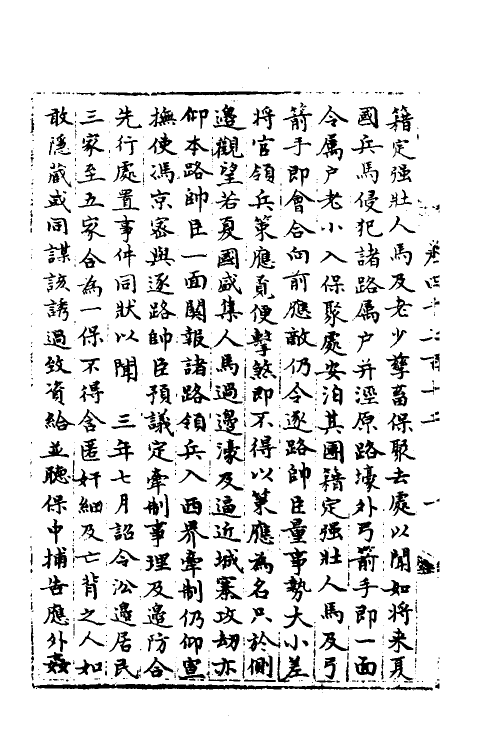 籍定强壯人馬及老少孳畜保聚去處以聞如將來夏
國兵馬侵犯諸路屬户并涇原路壕外弓箭手即一面
令屬户老小入保聚處安泊其團籍定强壯人馬及弓
箭手即會合向前應敵仍令逐路帥臣量事勢大小差
將官領兵策應覓便擊煞即不得以策應為名只於側
邊觀望若夏國盛集人馬過邊壕及逼近城寨攻刼亦
仰本路帥臣一面関報諸路領兵入西界牽制仍仰宣
撫使馮京宻與逐路帥臣預議定牽制事理及邊防合
先行處置事件同狀以聞　三年七月詔令㳂邊居民
三家至五家合為一保不得舍匿奸細及亡背之人如
敢隱藏或同謀該誘過致資給並聽保中捕告應外姦